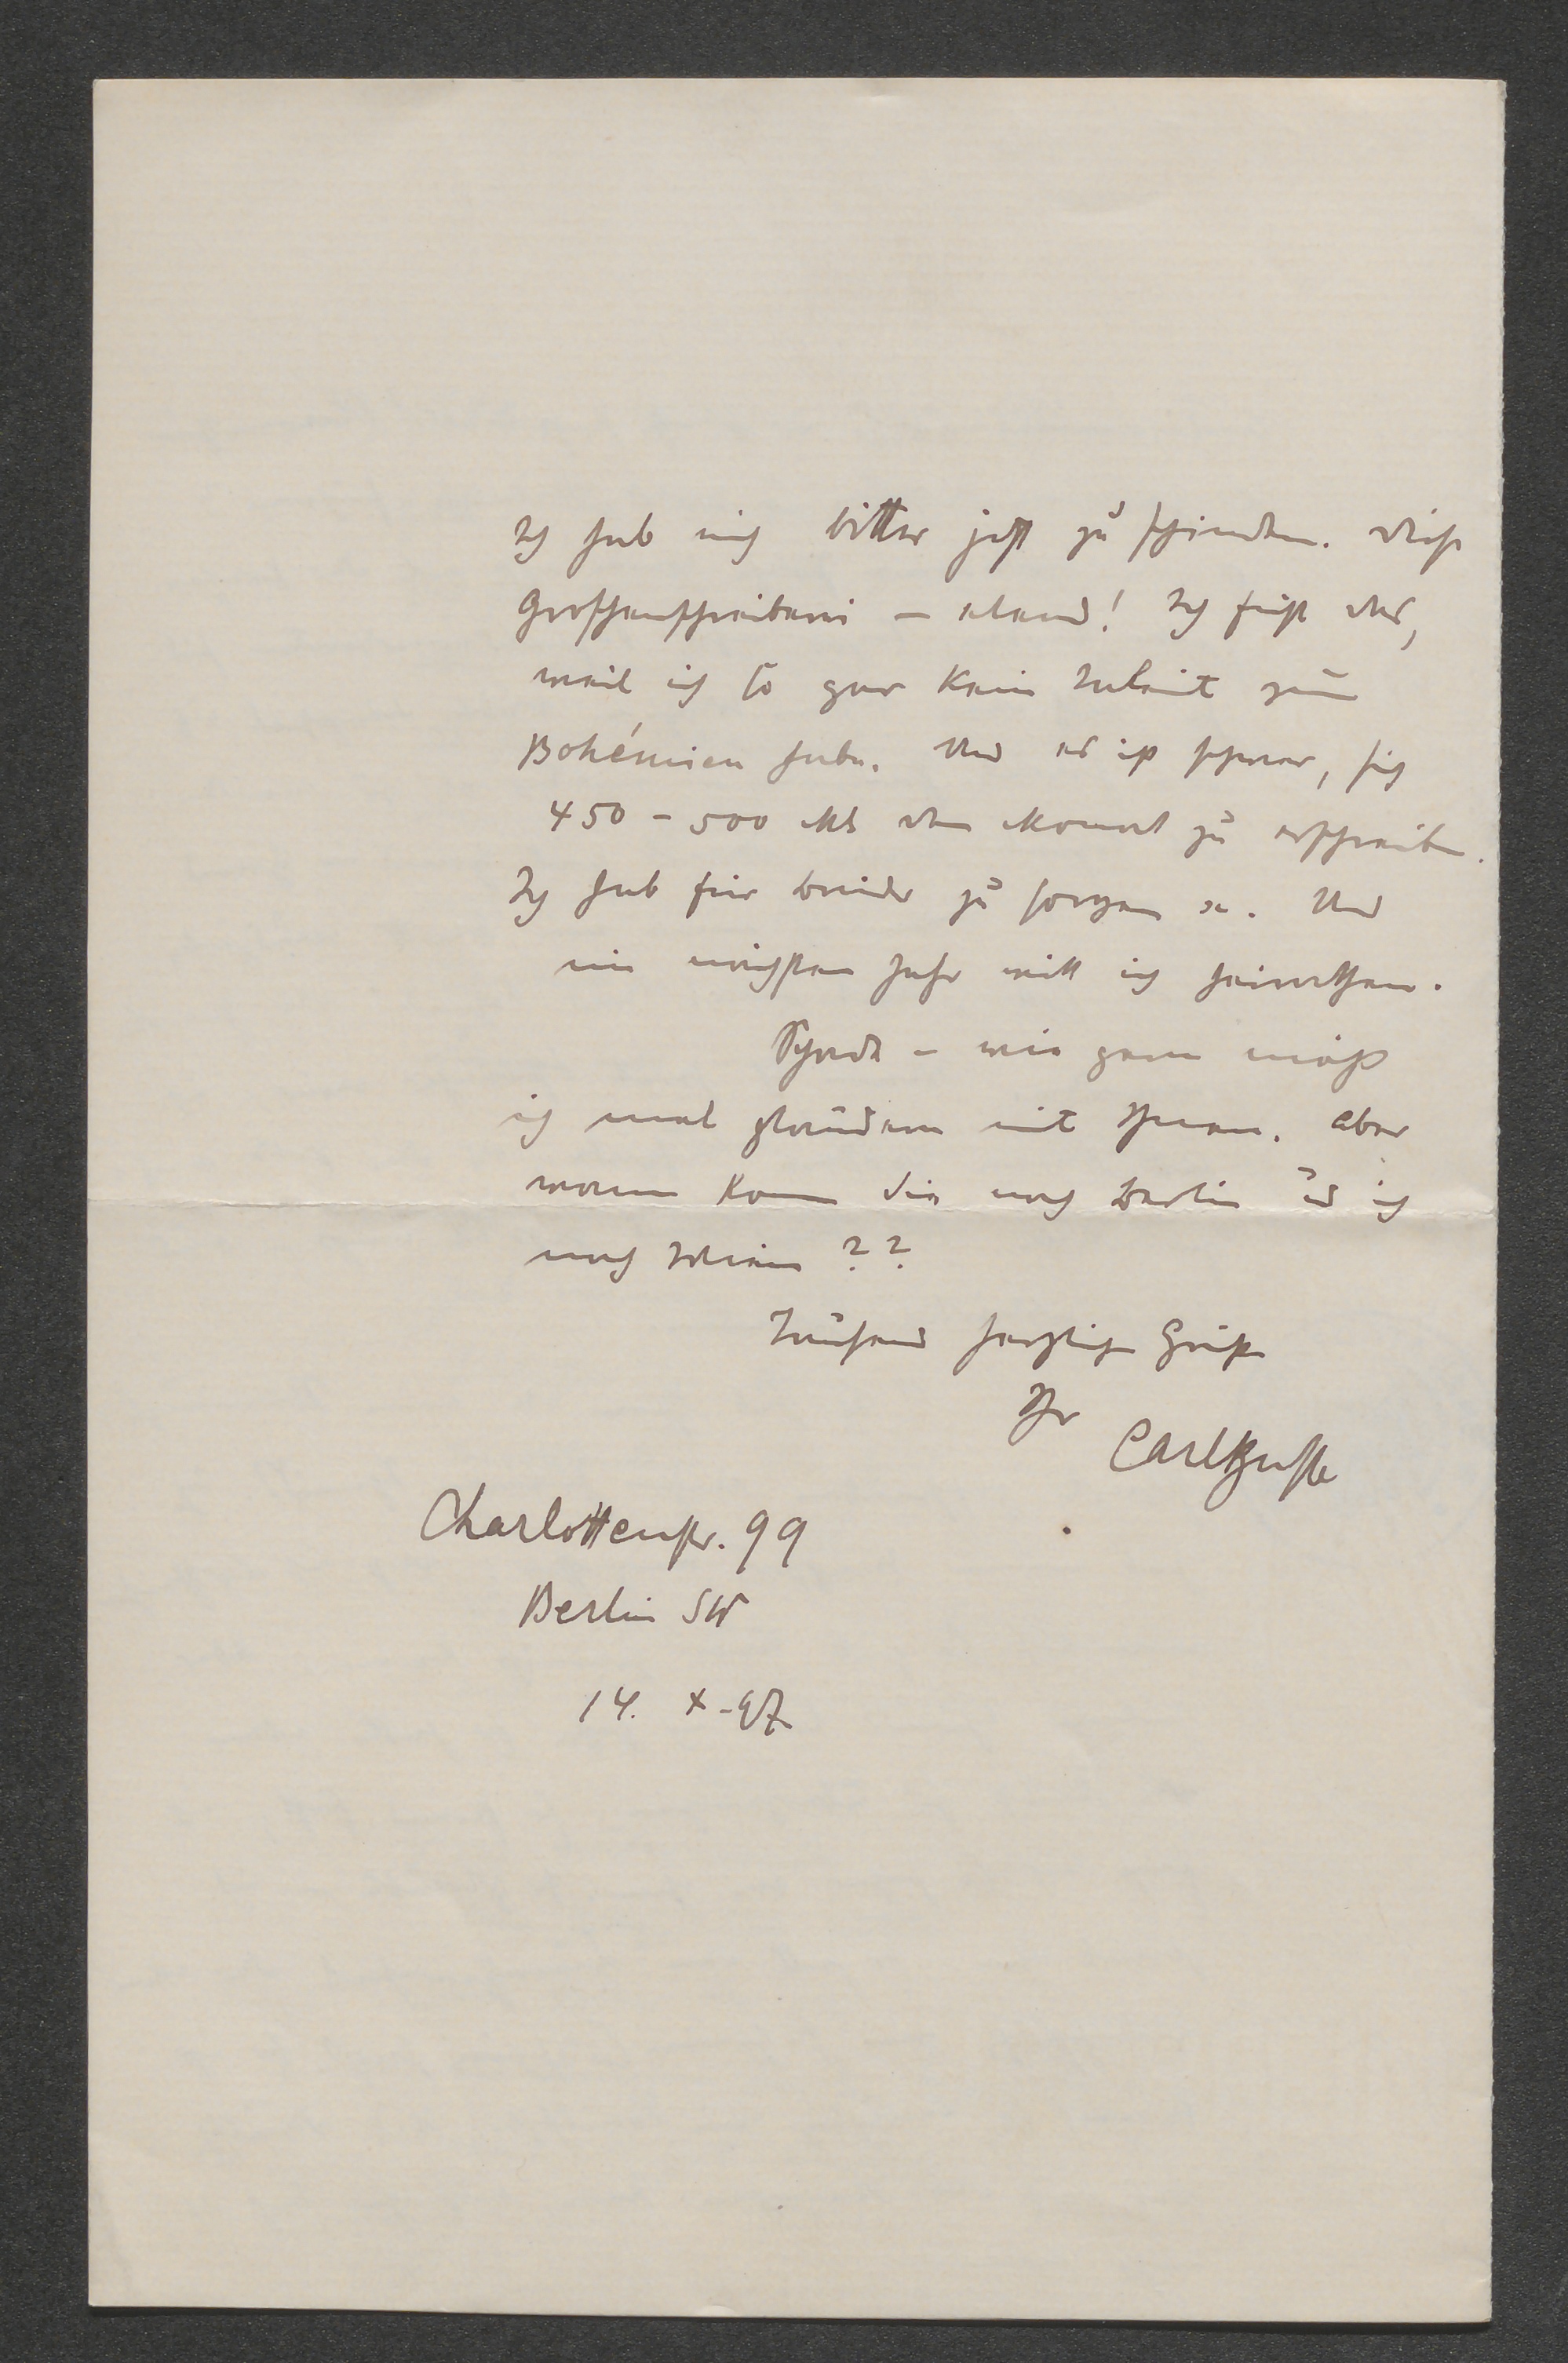 Ich hab mich bitter jetzt zu schinden. Diese
Groschenschreiberei – elend! Ich fühle das,
weil ich so gar kein Talent zum
Bohémien habe. Und es ist schwer, sich
450 – 500 Mk den Monat zu erschreiben.
Ich hab für Brüder zu sorgen etc. Und
im nächsten Jahr will ich heirathen.
Schade – wie gern möcht
ich mal plaudern mit Ihnen. Aber
wann kommen Sie nach Berlin u̅d ich
nach Wien ??
Tausend herzliche Grüße
Ihr
Carl Busse
Charlottenstr. 99
Berlin SW
14. X – 97